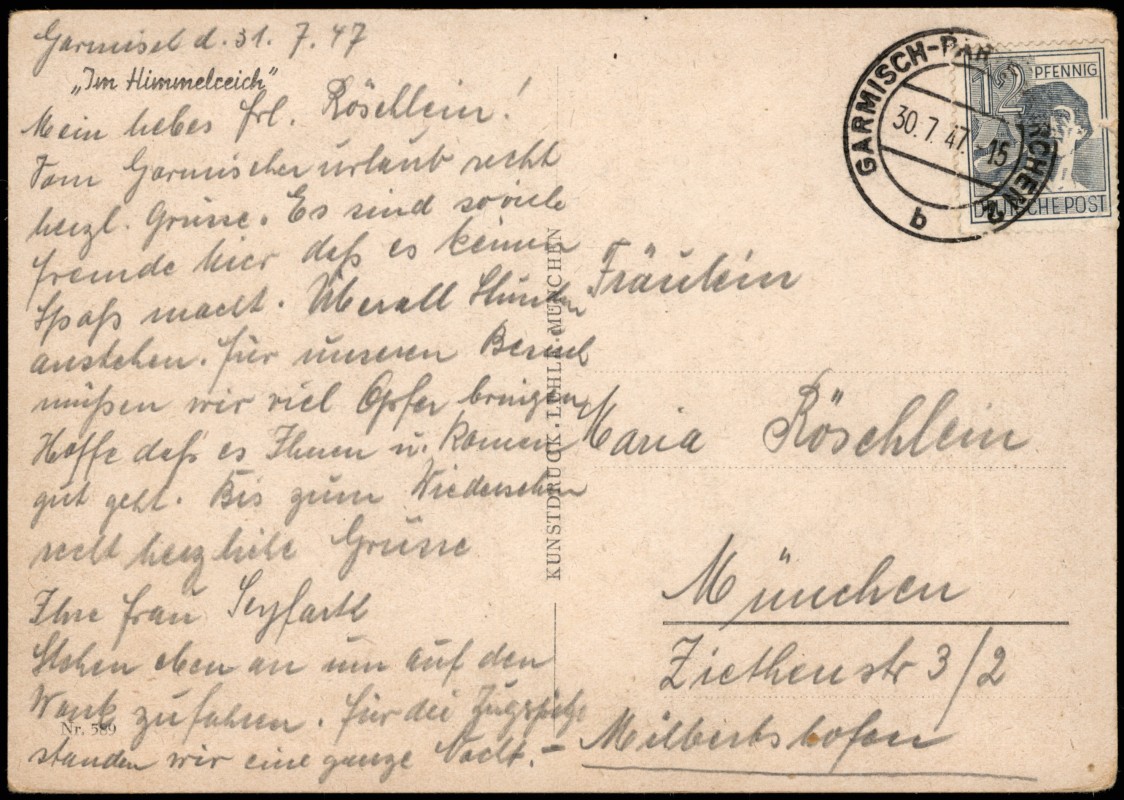 Garmisch d. 31. 7. 47
„Im Himmelreich"
Mein liebes Frl. Röschlein!
Vom Garmischer urlaub recht
herzl. Grüsse. Es sind soviele
fremde hier daß es keinen
Spaß macht. Überall Stunden
anstehen. für unseren
müßen wir viel Opfer bringen,
Hoffe daß es Ihnen u.
gut geht. Bis zum Wiedersehen
recht herzliche Grüsse
Ihre Frau Seyfarth
Stehen eben an um auf den
Wank zufahren. für die Zugspitze
standen wir eine ganze Nacht. –
Nr. 589
KUNSTDRUCK. LEHLE-MÜNCHEN
GARMISCH-PARTENKIRCHEN 2
30.7.47.-15
b
12 PFENNIG
DEUTSCHE POST
Fräulein
Maria Röschlein
München
Ziethenstr 3/2
Milbertshofen